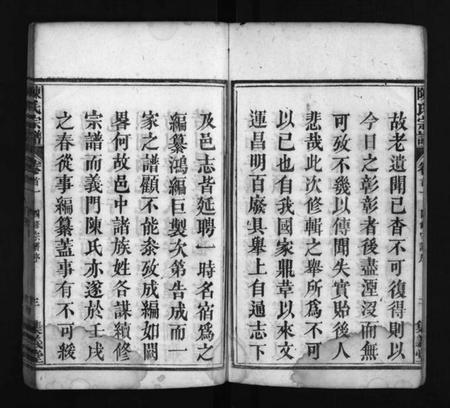 故老遺聞已杳不可復得則以
今日之彰彰者後盡湮沒而無
可攷不幾以傳聞失實貽後人
悲哉此次修輯之舉所為不可
以已也自我國家鼎革以來文
運昌明百廢具舉上自通志下
及邑志皆延聘一時名宿為之
編纂鴻編巨製次第告成而一
家之譜顧不能叅攷成編如闕
畧何故邑中諸族姓各謀續修
宗譜而義門陳氏亦遂於壬戌
之春從事編纂蓋事有不可緩
陳氏宗譜
卷首
四修宗譜序
三
集義堂